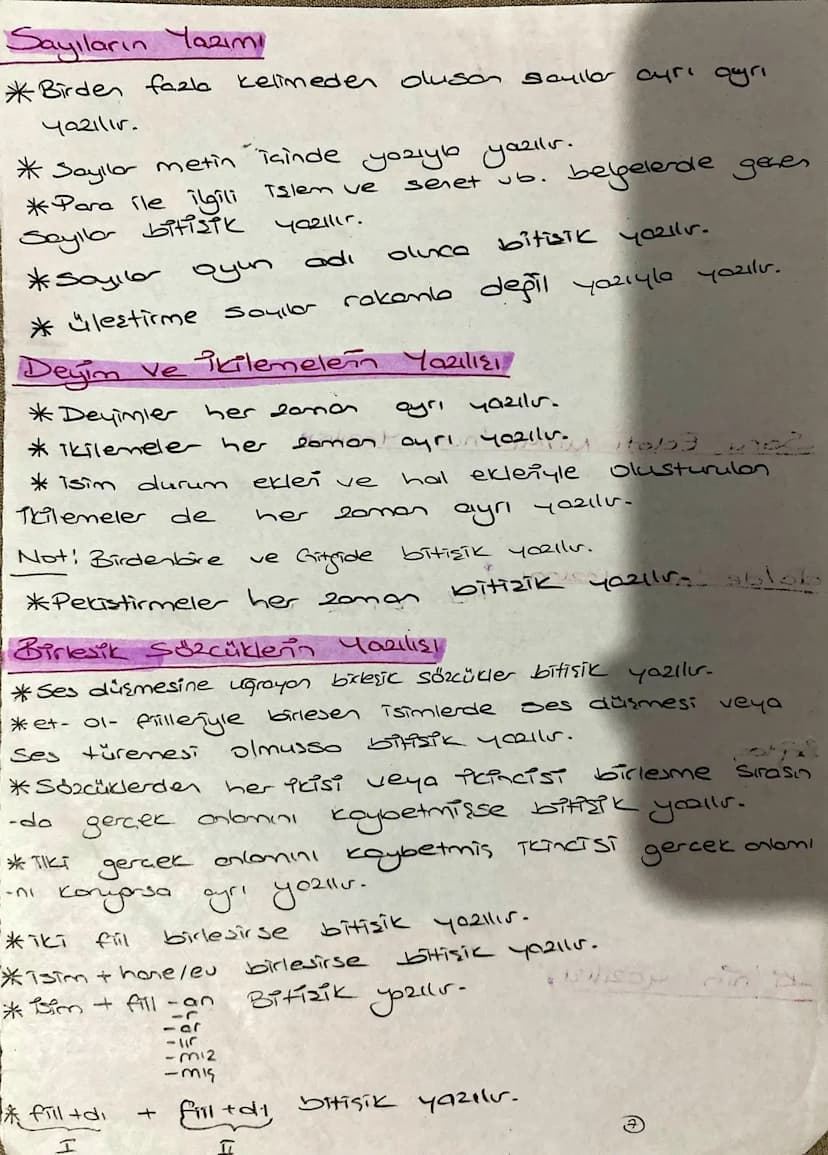 Sayıların Yazımı
* Birden fazla kelimeden oluşan sayılar ayrı ayrı
yazılır.
* Sayılar metin içinde yazıyla yazılır.
* Para ile ilgili işlem ve senet vb. belgelerde geçen
Sayılar bitişik yazılır.
* Sayılar oyun adı olunca bitişik yazılır.
* Üleştirme sayılar rakamla değil yazıyla yazılır.
Deyim ve İkilemelerin Yazılışı
* Deyimler her zaman ayrı yazılır.
* ikilemeler her zaman ayrı yazılır.
* isim durum ekleri ve hal ekleriyle oluşturulan
ikilemeler de her zaman ayrı yazılır.
Not! Birdenbire ve Gitgide bitişik yazılır.
* Pekiştirmeler her zaman bitizik yazılır.
Birleşik Sözcüklerin Yazılışı
* Ses düşmesine uğrayan birleşik sözcükler bitişik yazılır.
* et- ol- fiilleriyle birleşen isimlerde ses düşmesi veya
Ses türemesi olmuşsa bitişik yazılır.
* Sözcüklerden her ikisi veya ikincisi birleşme sırasın
-da gerçek anlamını kaybetmişse bitişik yazılır.
* ilki gerçek anlamını kaybetmiş ikincisi gerçek anlamı
-nı koruyorsa ayrı yazılır.
* iki fiil birleşirse bitişik yazılır.
* isim + hane/ev birleşirse bitişik yazılır.
* isim + fiil -an Bitizik yazılır.
-r
-ar
-ır
-mız
-mış
* fiil + dı + fiil + dı bitişik yazılır.
I II
7